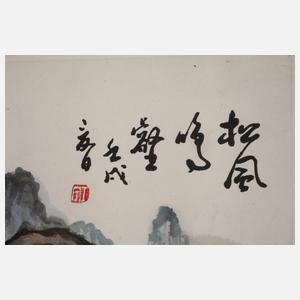 松風
鳴
壑
壬戌